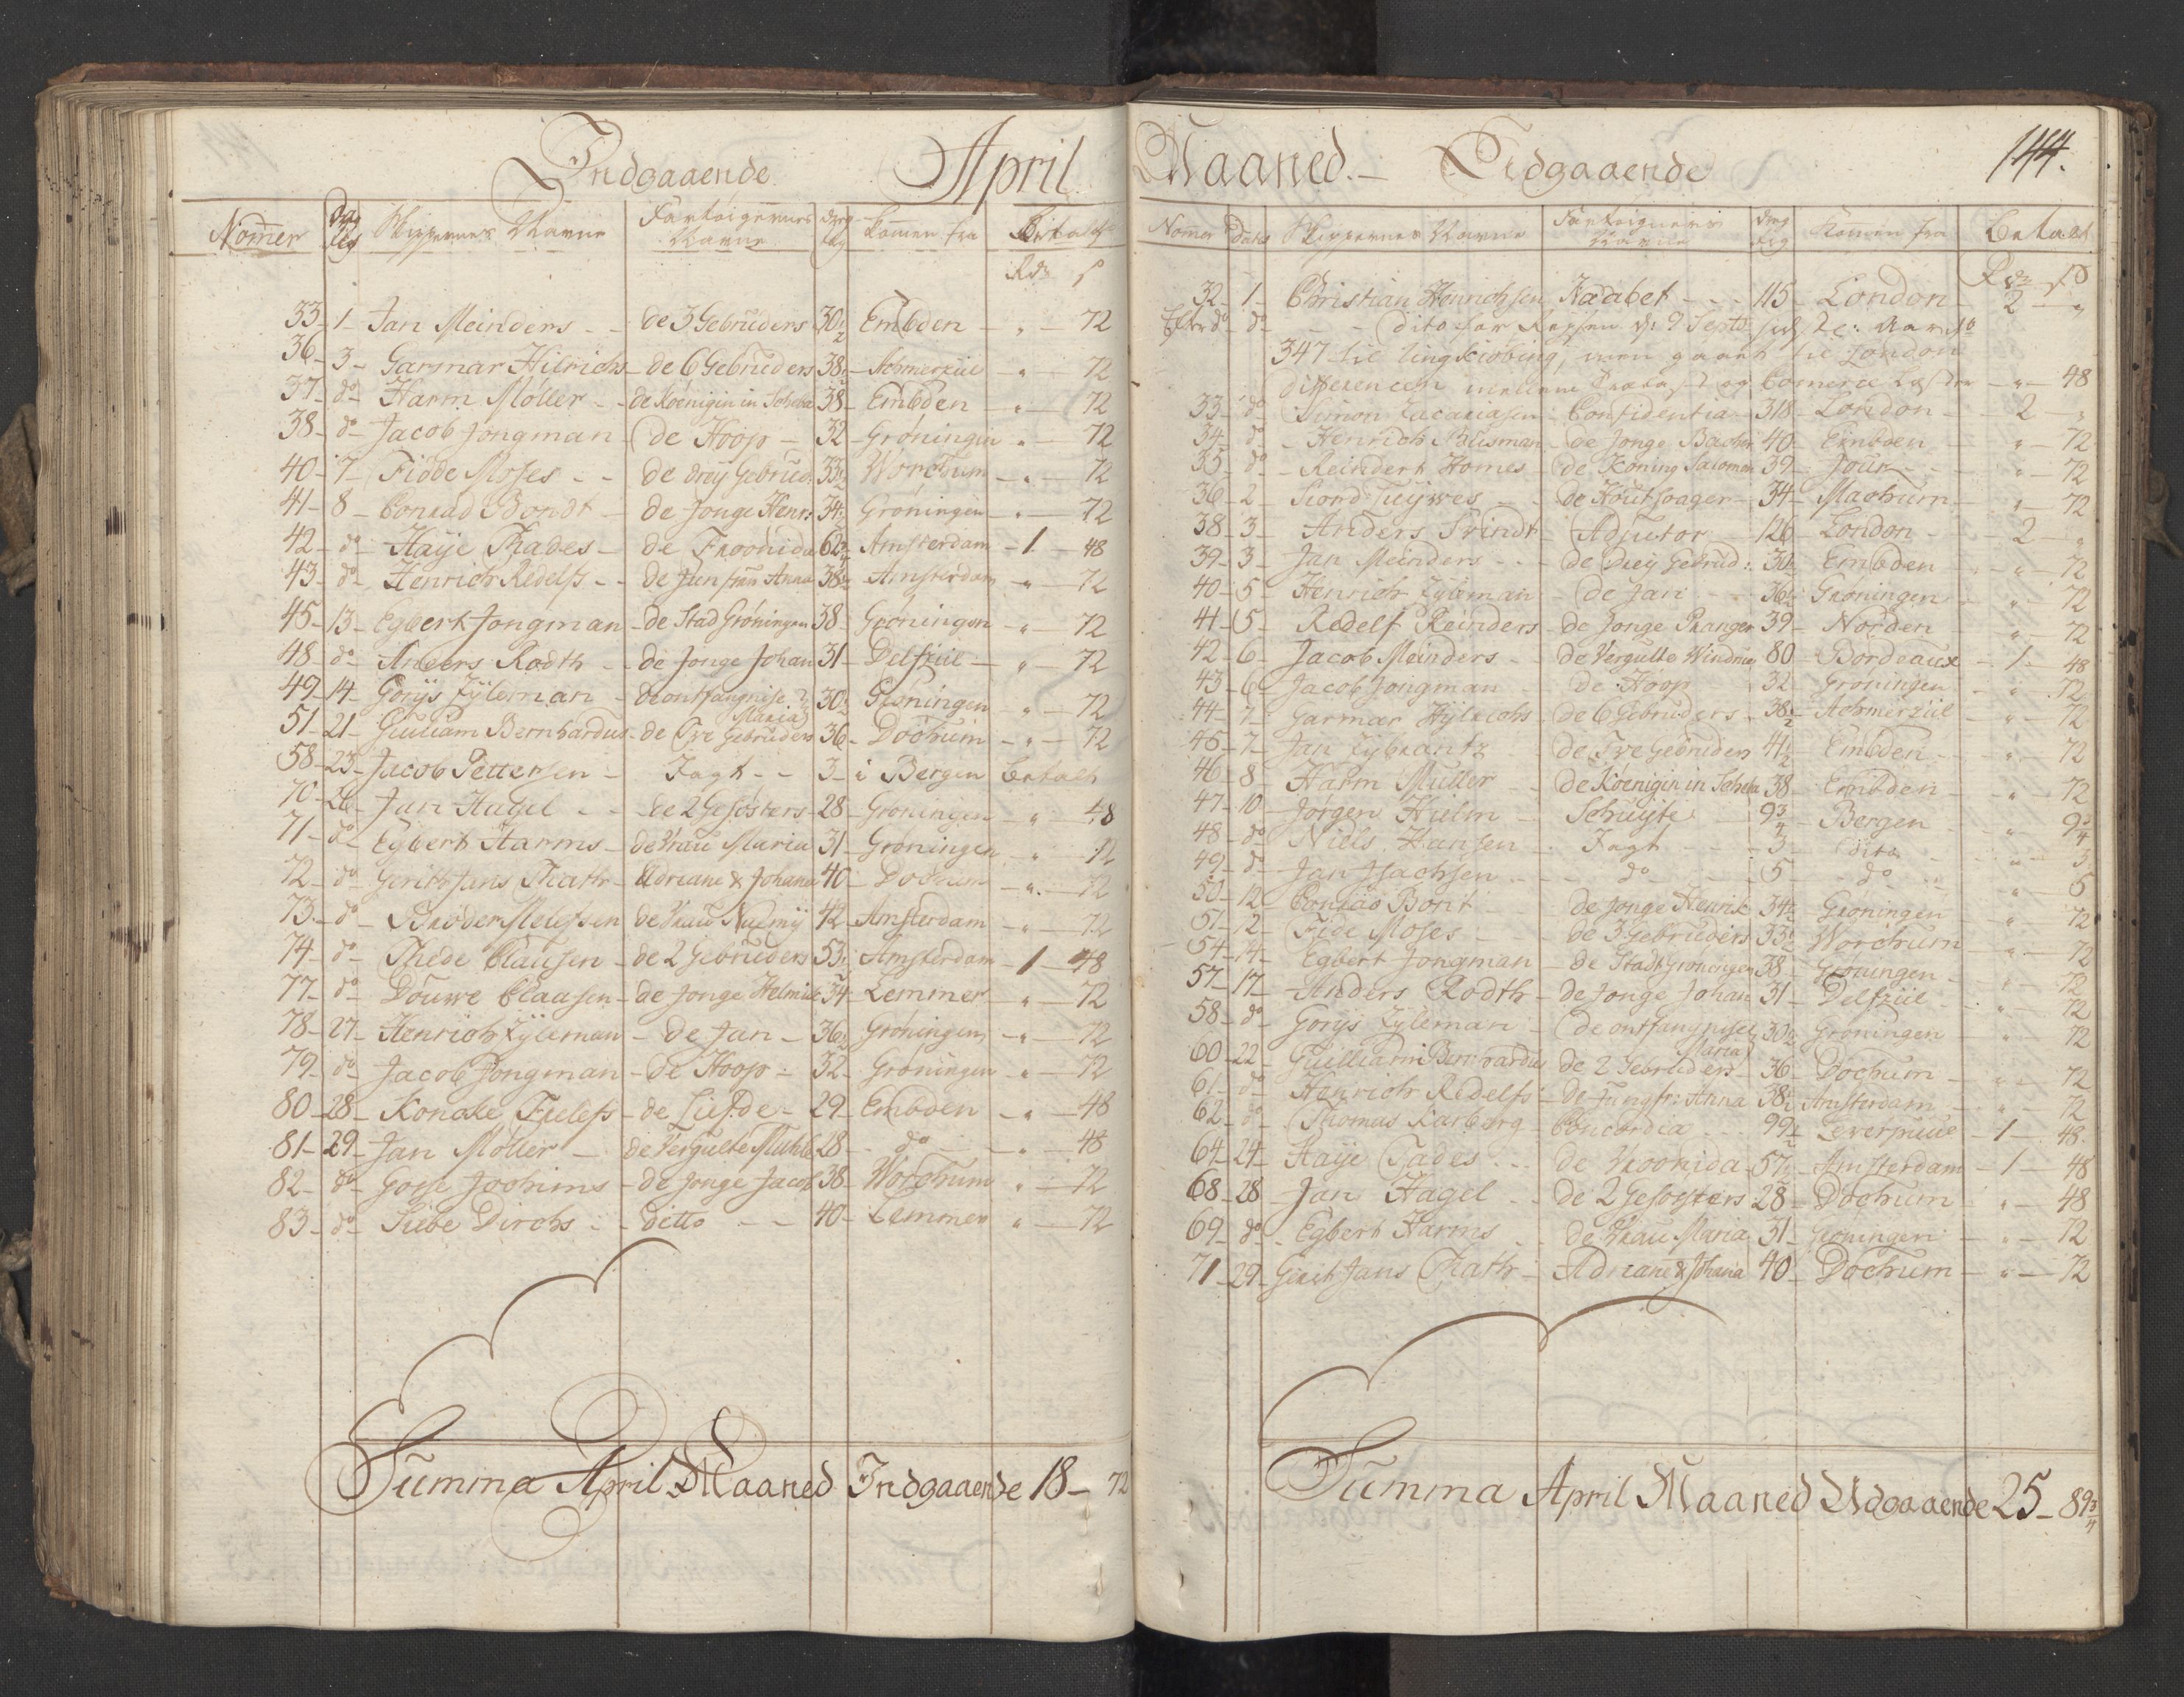 Indgaaende April
Nomer Dag Skippernes Navne Fartøigernes Navne Dreg: Komen fra Betalt
Rdr s
33 1 Jan Meinders de 3 Gebruders 30½ Embden " 72
36 3 Garmar Hilrichs de 6 Gebruders 38½ Achmerziil " 72
37 do Harm Møller de Koenigin in Scheba 38 Embden " 72
38 do Jacob Jongman de Hoop 32 Grøningen " 72
40 7 Fidde Moses de dreÿ Gebrud: 33½ Worchum " 72
41 8 Conrad Bondt de Jonge Henr: 34½ Grøningen " 72
42 do Haÿe Thades de Froonida 62 Amsterdam 1 48
43 do Henrich Redelfs de Junfrau Anna 38½ Amsterdam " 72
45 13 Egbert Jongman de Stad Grøningen 38 Grøningen " 72
48 do Anders Rodth de Jonge Johan 31 Delfziil " 72
49 14 Gorÿs Zÿleman de ontfangnise Maria 30½ Grøningen " 72
51 21 Guiliam Bernhardus de Tve Gebruders 36 Dochum " 72
58 23 Jacob Pettersen Jagt 3 i Bergen betalt
70 26 Jan Hagel de 2 Gesøsters 28 Groningen " 48
71 do Egbert Harms de Vrau Maria 31 Grøningen " 72
72 do Gerith Jans Thath Adriane & Johana 40 Dochum " 72
73 do Brøder Melefsen de Vrau 42 Amsterdam " 72
74 do Thede Clausen de 2 Gebruders 53½ Amsterdam 1 48
77 do Douwe Claasen de Jonge Helmich 34 Lemmer " 72
78 27 Henrich Zÿleman de Jan 36½ Grøningen " 72
79 do Jacob Jongman de Hoop 32 Grøningen " 72
80 28 Konake Fulefs de Liefde 29 Embden " 48
81 29 Jan Møller de Vergulte Muhle 28 do " 48
82 do Gosse Jochims de Jonge Jacob 38 Worchum " 72
83 do Siebe Dirchs ditto 40 Lemmer " 72
Summa April Maaned Indgaaende 18 72
Maaned. Udgaaende 144.
Nomer Dato Skippernes Navne Fartøigernes Navne Dreg: Komen fra Betalt
Rdr s
32 1 Christian Henrichsen Haabet 115 London 2 "
do do dito for Reysen d: 9 Septb
347 til Lingkiøbing, men gaaet til London
differencen mellem og " 48
33 do Simon Zacariasen Confidentia 318 London 2 "
34 do Henrich Buisman de Jonge 40 Embden " 72
35 do Reindert Homes de Koning Salomon 39 Jour " 72
36 2 Siord de Houtsaager 34 Machum " 72
38 3 Anders Prindt Adjutor 126 London 2 "
39 3 Jan Meinders de dreÿ Gebrud: 30½ Embden " 72
40 5 Henrich Zÿleman de Jan 36½ Grøningen " 72
41 5 Redelf Reinders de Jonge Pranger 39 Norden " 72
42 6 Jacob Meinders de Vergulte Windmøl 80 Bordeaux 1 48
43 6 Jacob Jongman de Hoop 32 Grøningen " 72
44 7 Garmar Hÿlrichs de 6 Gebruders 38½ Achmerziil " 72
45 7 Jan Zÿbrantz de Tve Gebruders 41½ Embden " 72
46 8 Harm Muller de Koenigin in Scheba 38 Embden " 72
47 10 Jørgen Hielm Schuÿte 9¾ Bergen " 9¾
48 do Niels Hansen Jagt 3 dito " 3
49 do Jan Jsachsen do 5 do " 5
50 12 Conrad Bont de Jonge Henrik 34½ Grøningen " 72
51 12 Fide Moses de 3 Gebruders 33½ Worchum " 72
54 14 Egbert Jongman de Stadt Groningen 38 Grøningen " 72
57 17 Anders Rodth de Jonge Johan 31 Delfziil " 72
58 do Gorÿs Zÿleman de ontfangnise Maria 30½ Grøningen " 72
60 22 Guilliam Bernhardus de 2 Gebruders 36 Dochum " 72
61 do Henrich Redelfs de Jungfr: Anna 38½ Amsterdam " 72
62 do Thomas Kasberg Concordia 99½ Leverpuul 1 48
64 24 Haÿe Tades de Vroonida 57½ Amsterdam 1 48
68 28 Jan Hagel de 2 Gesoysters 28 Dochum " 48
69 do Egbert Harms de Vrau Maria 31 Groningen " 72
71 29 Gerit Jans Thath Adriane & Johana 40 Dochum " 72
Summa April Maaned Udgaaende 25 89¾